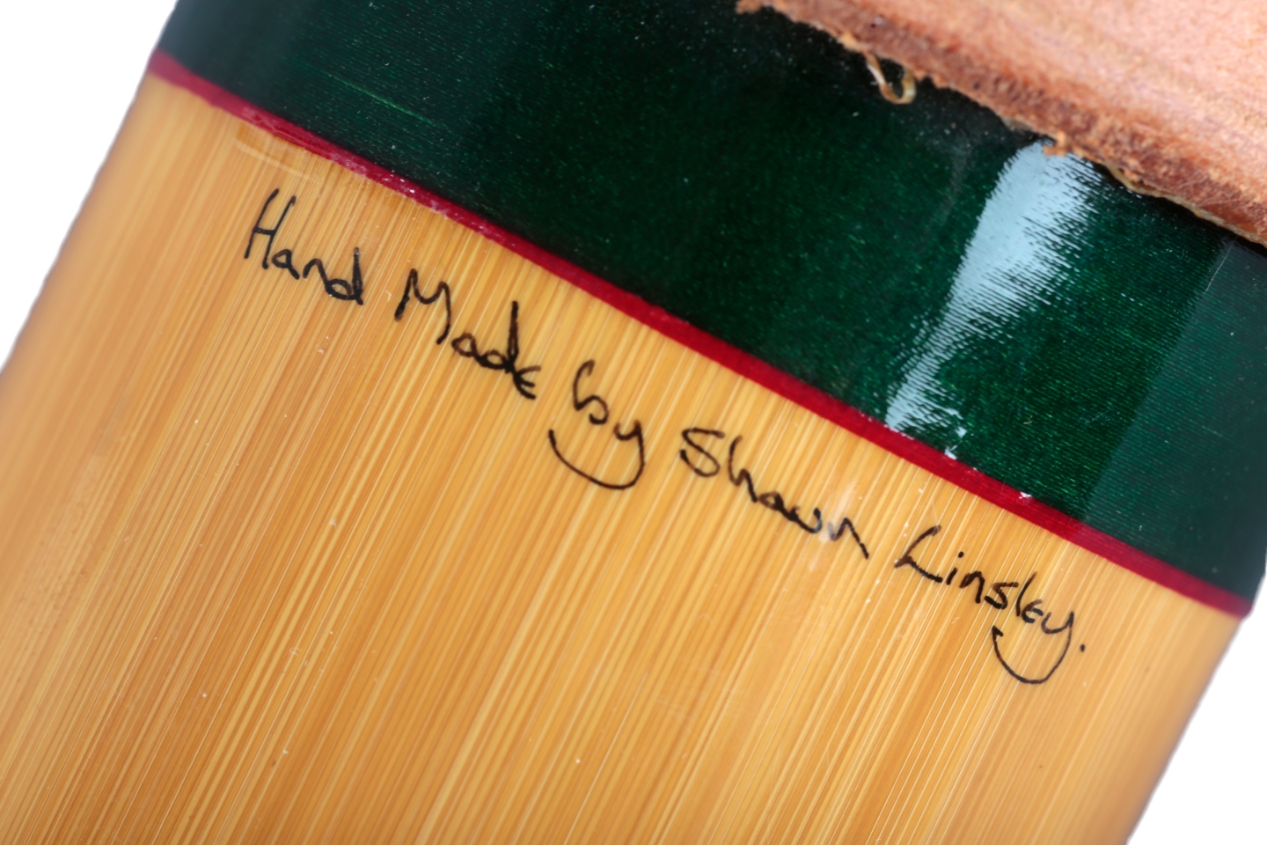 Hand Made by Shawn Linsley.